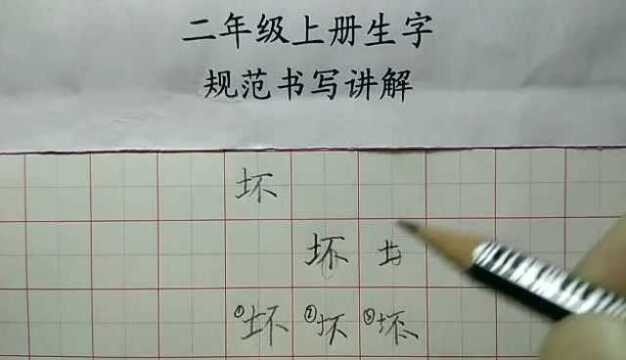 二年级上册生字
规范书写讲解
坏
坏
①坏 ②坏 ③坏